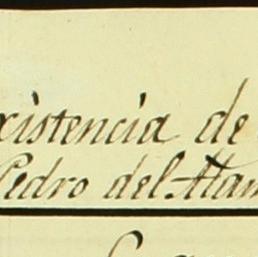 xistencia de
Pedro del Alam